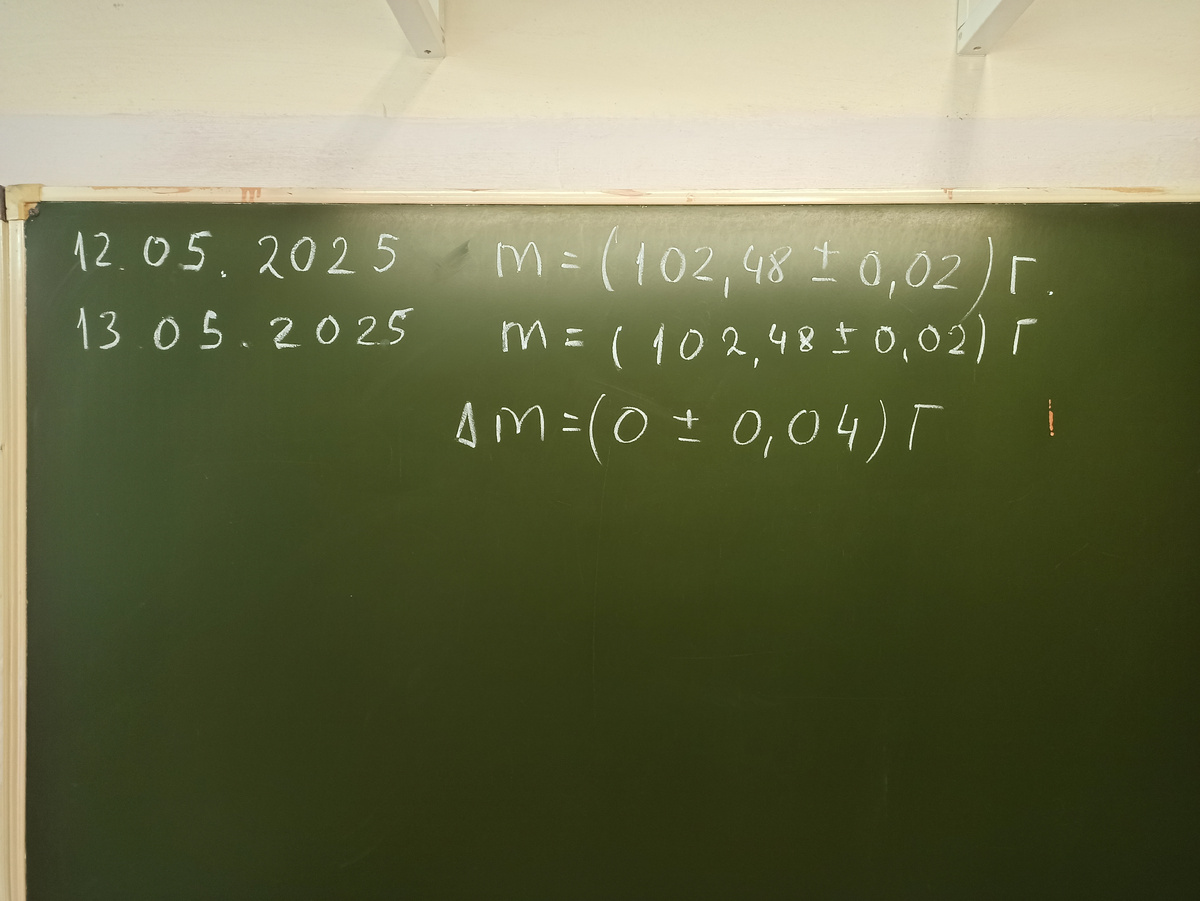 12.05.2025 m = (102,48 ± 0,02) г.
13 05.2025 m = (102,48 ± 0,02) г
Δm = (0 ± 0,04) г !